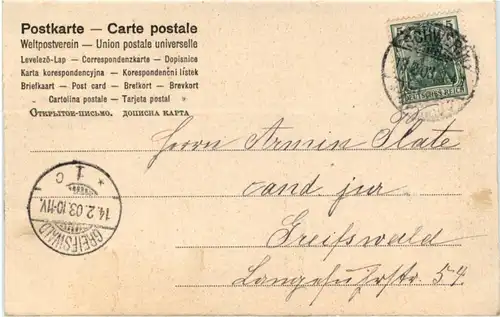 Postkarte — Carte postale
Weltpostverein — Union postale universelle
Levelező-Lap — Correspondenzkarte — Dopisnice
Karta korespondencyjna — Korespondenční lístek
Briefkaart — Post card — Brefkort — Brevkort
Cartolina postale — Tarjeta postal
Открытое-письмо. дописна карта
DEUTSCHES REICH
Herrn Armin Plate
cand jur
Greifswald
Langefuhrstr. 54
GREIFSWALD
14.2.03.10-11V.
* 1 c